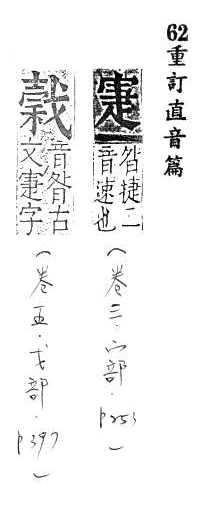 62重訂直音篇
寁
昝捷二
音速也
(卷三.宀部.p253)
音昝古
文寁字
(卷五.戈部.p397)